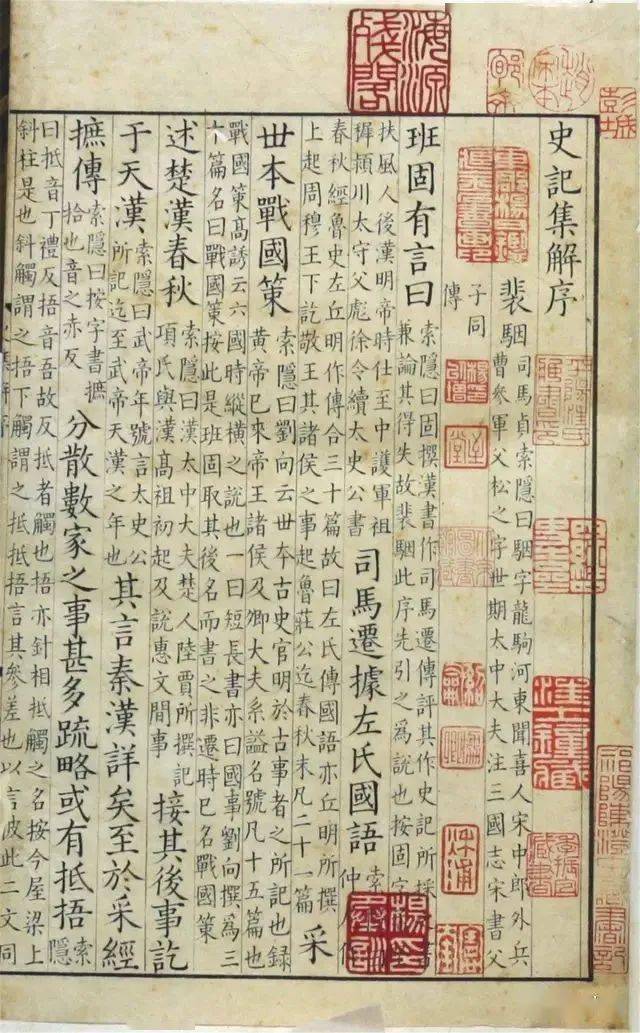 海源殘閣
彭城
史記集解序
裴駰司馬貞索隱曰駰字龍駒河東聞喜人宋中郎外兵
曹參軍父松之字世期太中大夫注三國志宋書父
子同
傳
班固有言曰索隱曰固撰漢書作司馬遷傳評其作史記所採書
兼論其得失故裴駰此序先引之為説也按固字
扶風人後漢明帝時仕至中護軍祖
穉潁川太守父彪徐令續太史公書
司馬遷據左氏國語索
仲
春秋經魯史左丘明作傳合三十篇故曰左氏傳國語亦丘明所撰
上起周穆王下訖敬王其諸侯之事起魯莊公迄春秋末凡二十一篇
采
世本戰國策索隱曰劉向云世本古史官明於古事者之所記也録
黃帝已來帝王諸侯及卿大夫系謚名號凡十五篇也
戰國策高誘云六國時縱橫之説也一曰短長書亦曰國事劉向撰為三
十篇名曰戰國策按此是班固取其後名而書之非遷時已名戰國策
述楚漢春秋索隱曰漢太中大夫楚人陸賈所撰記
項氏與漢高祖初起及説惠文間事
接其後事訖
于天漢索隱曰武帝年號言太史公
所記迄至武帝天漢之年也
其言秦漢詳矣至於采經
摭傳索隱曰按字書摭
拾也音之赤反
分散數家之事甚多疏略或有抵捂索
隱
曰抵音丁禮反捂音吾故反抵者觸也捂亦斜相抵觸之名按今屋梁上
斜柱是也斜觸謂之捂下觸謂之抵抵捂言其參差也以言彼此二文同